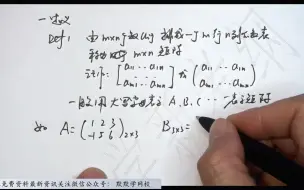 一、定义
Def: 由 m×n 个数 aij 排成一个 m 行 n 列的数表
称为 m×n 矩阵
记作: [a11 … a1n ⋮ am1 … amn] 或 (a11 … a1n ⋮ am1 … amn)
一般用大写字母表示 A. B. C … 表示矩阵
如 A = (1 2 3 -1 5 6)2×3 B3×3 =
免费资料最新资讯关注微信公众号： 默默学网校